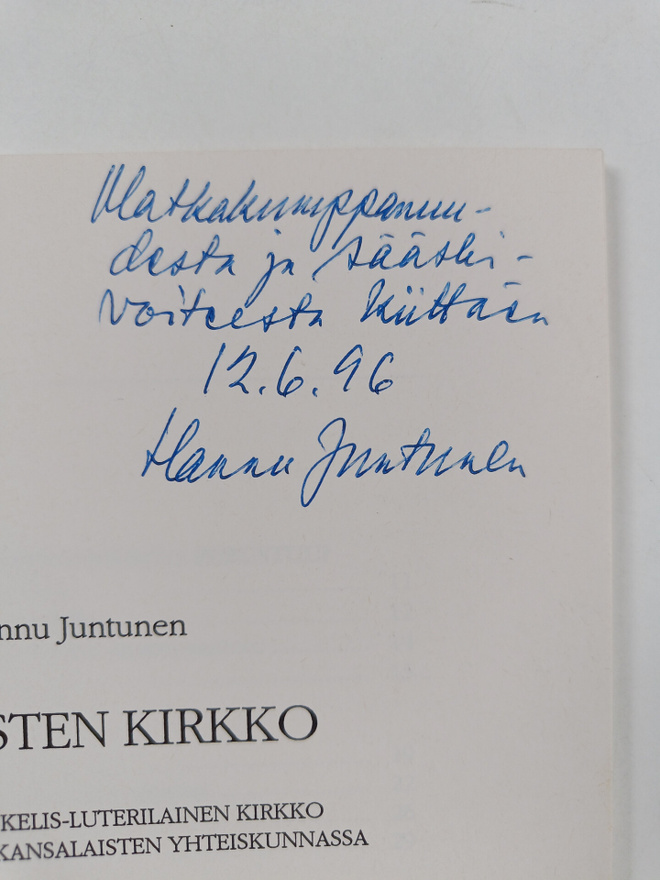 Matkakumppanuu-
desta ja sääski-
voiteesta kiittäen
12.6.96
Hannu Juntunen
nnu Juntunen
STEN KIRKKO
KELIS-LUTERILAINEN KIRKKO
KANSALAISTEN YHTEISKUNNASSA